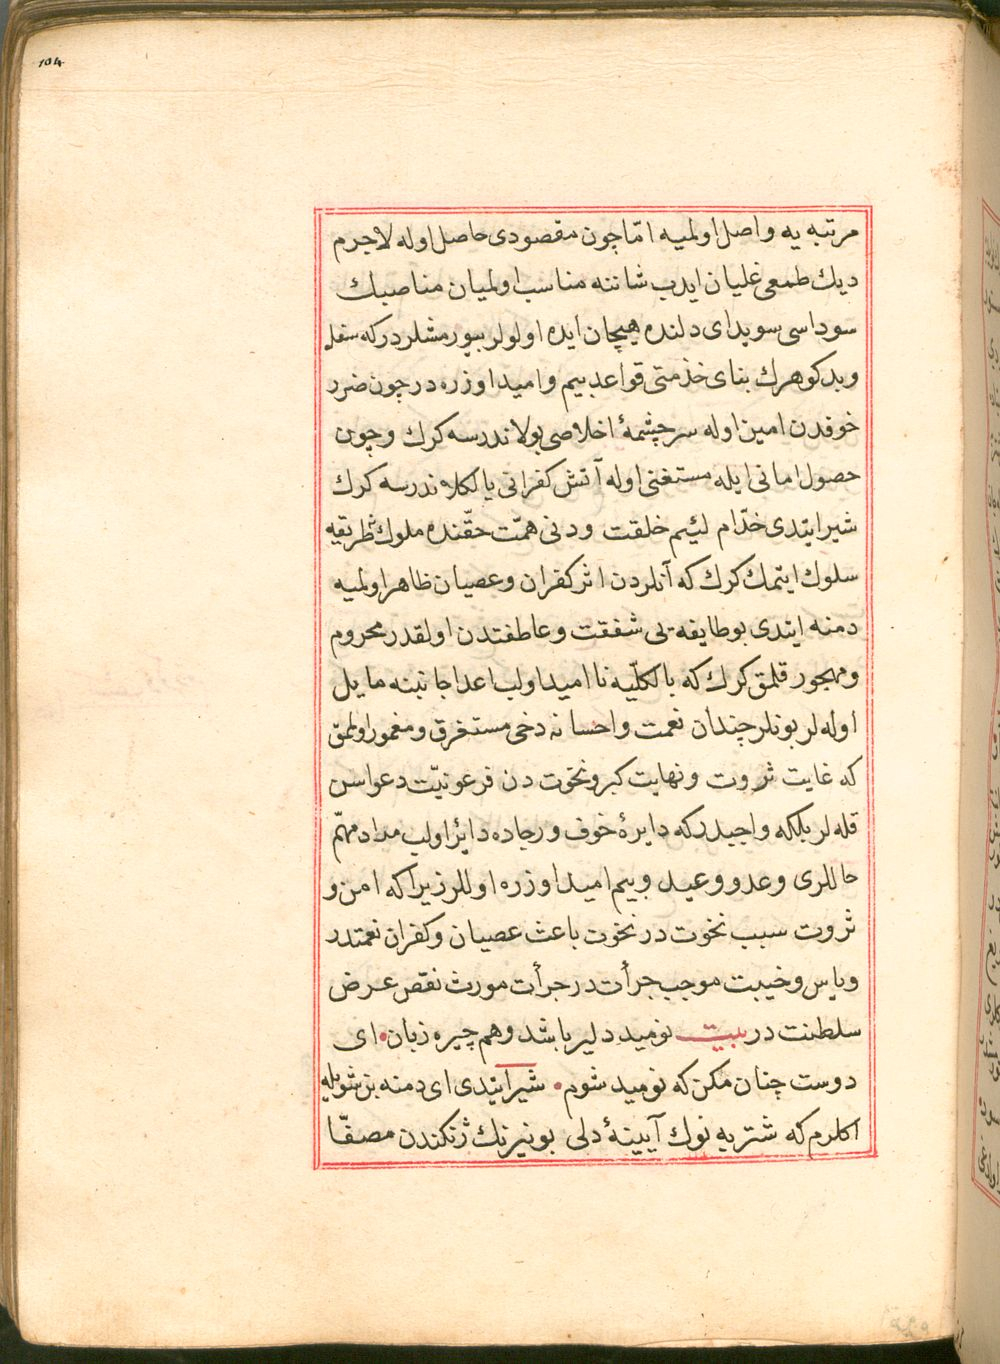 104
مرتبه يه واصل اولميه امّا چون مقصودى حاصل اوله لاجرم
ديك طمعى غليان ايدب شاننه مناسب اولميان مناصبك
سوداسى سويداى دلنده هيجان ايده اولولر بيورمشلردركه سفله
وبدكوهرك بناى خذمتى قواعد بيم واميد اوزره در چون ضرر
خوفدن امين اوله سرچشمهٔ اخلاصى بولاندرسه كرك وچون
حصول امانى ايله مستغنى اوله آتش كفرانى يالكلاندرسه كرك
شير ايتدى خدّام لئيم خلقت ودنى همّت حقّنده ملوك نه طريقه
سلوك ايتمك كرك كه آنلردن اثر كفران وعصيان ظاهر اولميه
دمنه ايتدى بو طايفه يى شفقت وعاطفتدن اولقدر محروم
ومهجور قلمق كرك كه بالكلّيه نااميد اولب اعدا جانبنه مايل
اوله لر بونلر چندان نعمت واحسانه دخى مستغرق ومغمور اولمق
كه غايت ثروت ونهايت كبر ونخوت دن فرعونيّت دعواسن
قله لر بلكه واجبدركه دايرهٔ خوف ورجاده داير اولب مداد مهمّ
حاللرى وعد ووعيد وبيم اميد اوزره اوللر زيرا كه امن و
ثروت سبب نخوت در نخوت باعث عصيان وكفران نعمتدر
وياس وخيبت موجب جرأت در جرأت مورث نقص عرض
سلطنت در بيت نوميد دلير باشد وهم چيره زبان • اى
دوست چنان مكن كه نوميد شوم • شير ايتدى اى دمنه بن شويله
اكلرم كه شتربه نوك آيينهٔ دلى بو نيرنك ژنكندن مصفّا